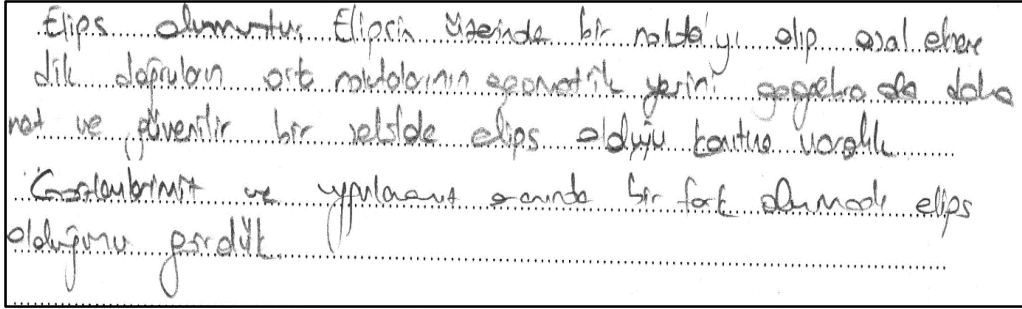 Elips olumuştur. Elipsin üzerinde bir nokta'yı alıp asal eksene
dik doğruların orta noktalarının geometrik yerini geogebra da daha
net ve güvenilir bir şekilde elips olduğu kanıtına vardık
ve uygulamamız sonunda bir fark olumadı elips
olduğunu gördük.